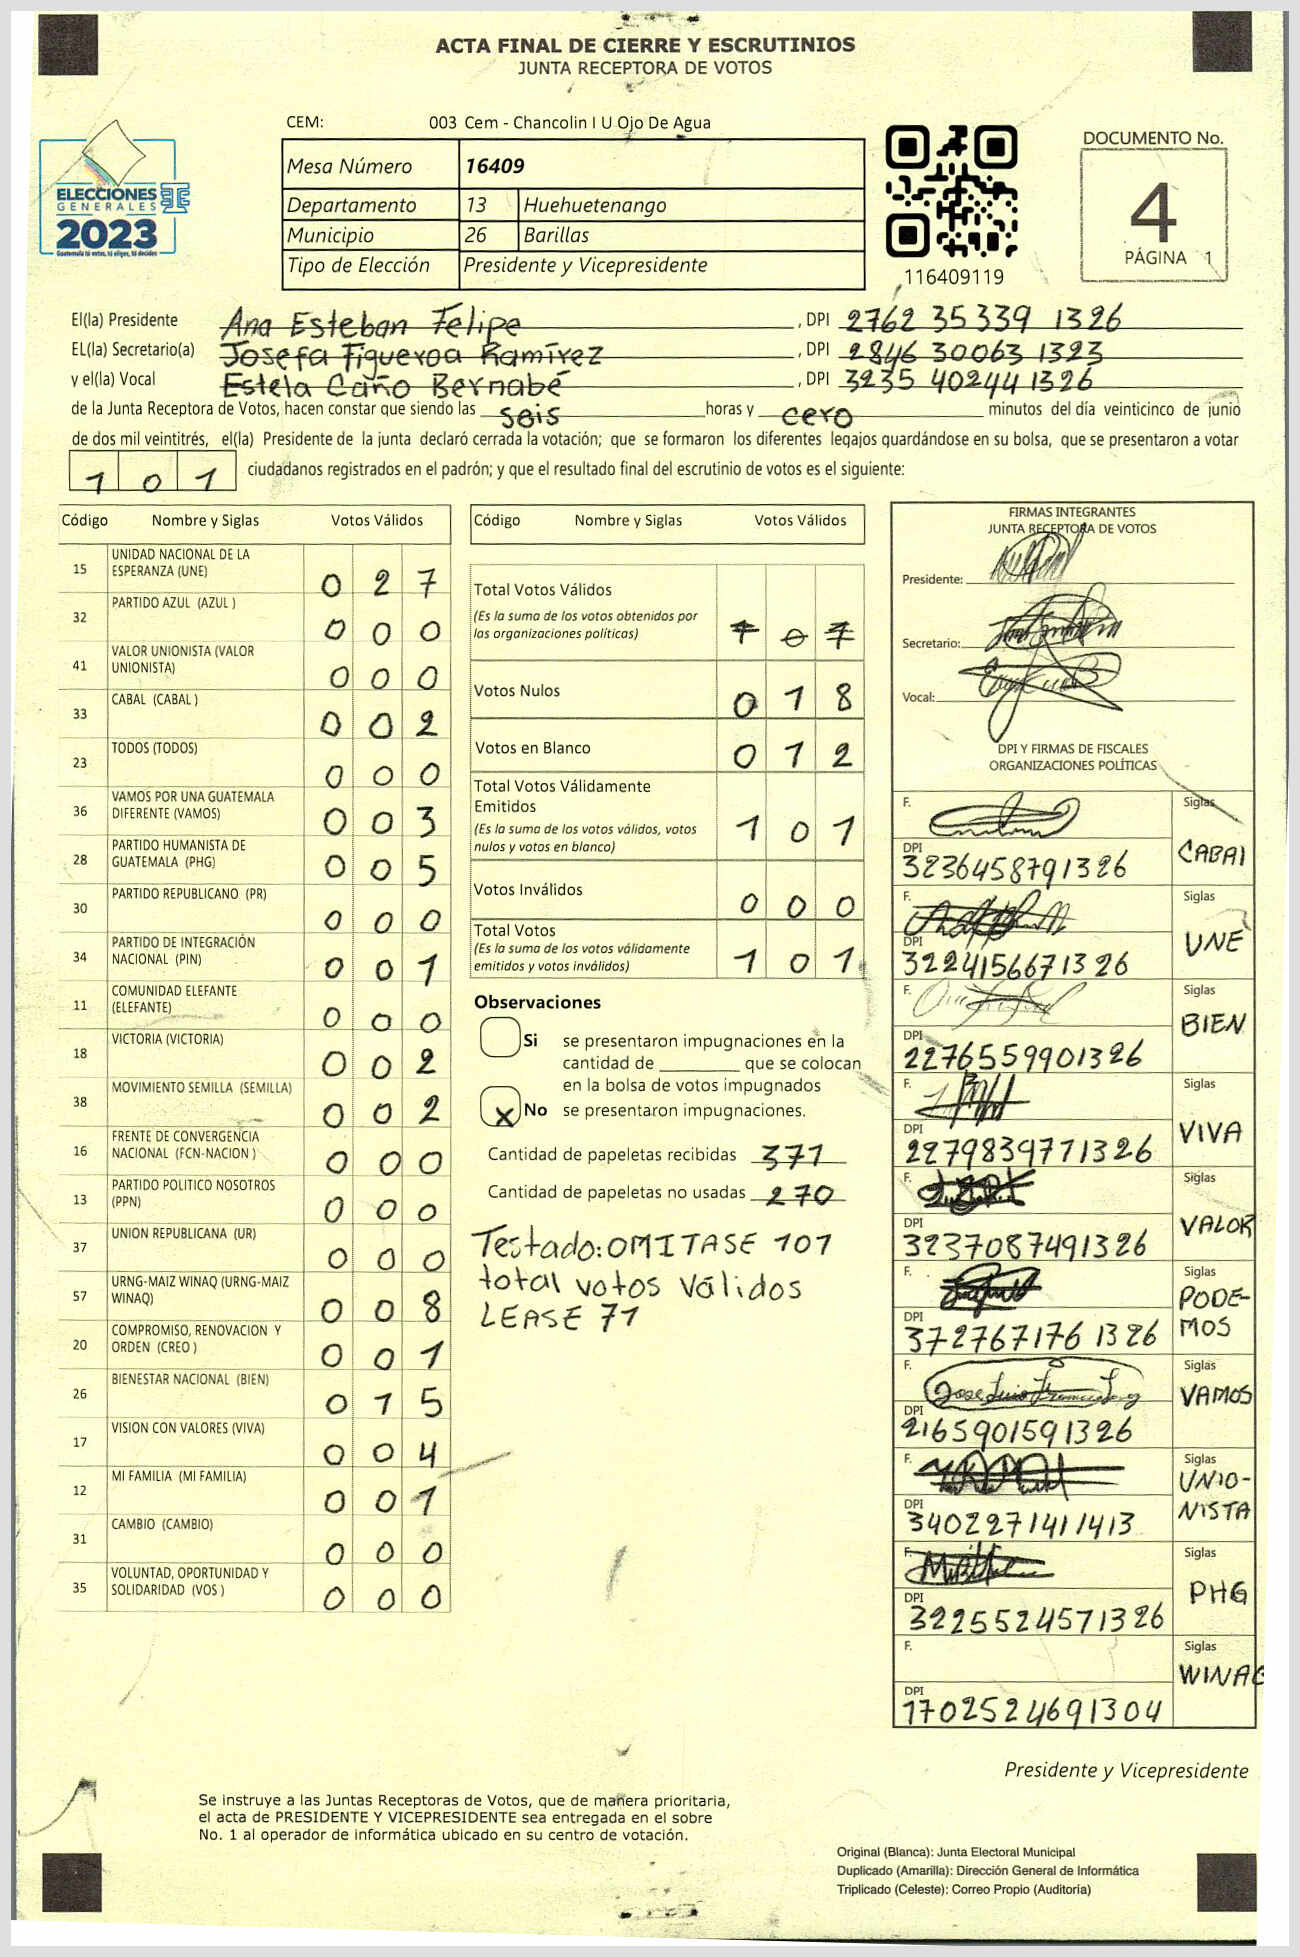 ACTA FINAL DE CIERRE Y ESCRUTINIOS
JUNTA RECEPTORA DE VOTOS
ELECCIONES
GENERALES
2023
Guatemala tú votas, tú eliges, tú decides
CEM: 003 Cem - Chancolin I U Ojo De Agua
Mesa Número 16409
Departamento 13 Huehuetenango
Municipio 26 Barillas
Tipo de Elección Presidente y Vicepresidente
116409119
DOCUMENTO No.
4
PÁGINA 1
El(la) Presidente Ana Esteban Felipe, DPI 2762 35339 1326
EL(la) Secretario(a) Josefa Figueroa Ramírez, DPI 2846 30063 1323
y el(la) Vocal Estela Caño Bernabé, DPI 3235 40244 1326
de la Junta Receptora de Votos, hacen constar que siendo las seis horas y cero minutos del día veinticinco de junio
de dos mil veintitrés, el(la) Presidente de la junta declaró cerrada la votación; que se formaron los diferentes legajos guardándose en su bolsa, que se presentaron a votar
101 ciudadanos registrados en el padrón; y que el resultado final del escrutinio de votos es el siguiente:
Código Nombre y Siglas Votos Válidos
15 UNIDAD NACIONAL DE LA ESPERANZA (UNE) 0 2 7
32 PARTIDO AZUL (AZUL ) 0 0 0
41 VALOR UNIONISTA (VALOR UNIONISTA) 0 0 0
33 CABAL (CABAL ) 0 0 2
23 TODOS (TODOS) 0 0 0
36 VAMOS POR UNA GUATEMALA DIFERENTE (VAMOS) 0 0 3
28 PARTIDO HUMANISTA DE GUATEMALA (PHG) 0 0 5
30 PARTIDO REPUBLICANO (PR) 0 0 0
34 PARTIDO DE INTEGRACIÓN NACIONAL (PIN) 0 0 1
11 COMUNIDAD ELEFANTE (ELEFANTE) 0 0 0
18 VICTORIA (VICTORIA) 0 0 2
38 MOVIMIENTO SEMILLA (SEMILLA) 0 0 2
16 FRENTE DE CONVERGENCIA NACIONAL (FCN-NACION ) 0 0 0
13 PARTIDO POLITICO NOSOTROS (PPN) 0 0 0
37 UNION REPUBLICANA (UR) 0 0 0
57 URNG-MAIZ WINAQ (URNG-MAIZ WINAQ) 0 0 8
20 COMPROMISO, RENOVACION Y ORDEN (CREO ) 0 0 1
26 BIENESTAR NACIONAL (BIEN) 0 1 5
17 VISION CON VALORES (VIVA) 0 0 4
12 MI FAMILIA (MI FAMILIA) 0 0 1
31 CAMBIO (CAMBIO) 0 0 0
35 VOLUNTAD, OPORTUNIDAD Y SOLIDARIDAD (VOS ) 0 0 0
Código Nombre y Siglas Votos Válidos
Total Votos Válidos
(Es la suma de los votos obtenidos por
las organizaciones políticas) 1 0 1
Votos Nulos 0 1 8
Votos en Blanco 0 1 2
Total Votos Válidamente
Emitidos
(Es la suma de los votos válidos, votos
nulos y votos en blanco) 1 0 1
Votos Inválidos 0 0 0
Total Votos
(Es la suma de los votos válidamente
emitidos y votos inválidos) 1 0 1
Observaciones
Si se presentaron impugnaciones en la
cantidad de ________ que se colocan
en la bolsa de votos impugnados
X No se presentaron impugnaciones.
Cantidad de papeletas recibidas 371
Cantidad de papeletas no usadas 270
Testado: OMITASE 101
total votos válidos
LEASE 71
FIRMAS INTEGRANTES
JUNTA RECEPTORA DE VOTOS
Presidente:
Secretario:
Vocal:
DPI Y FIRMAS DE FISCALES
ORGANIZACIONES POLÍTICAS
F. Siglas
DPI 3236458791326 CABAL
F. Siglas
DPI 3224156671326 UNE
F. Siglas
DPI 2276559901326 BIEN
F. Siglas
DPI 2279839771326 VIVA
F. Siglas
DPI 3237087491326 VALOR
F. Siglas
DPI 372767176 1326 PODE-
MOS
F. Siglas
DPI 2165901591326 VAMOS
F. Siglas
DPI 3402271411413 UNIO-
NISTA
F. Siglas
DPI 3225524571326 PHG
F. Siglas
DPI 1702524691304 WINAQ
Presidente y Vicepresidente
Se instruye a las Juntas Receptoras de Votos, que de manera prioritaria,
el acta de PRESIDENTE Y VICEPRESIDENTE sea entregada en el sobre
No. 1 al operador de informática ubicado en su centro de votación.
Original (Blanca): Junta Electoral Municipal
Duplicado (Amarilla): Dirección General de Informática
Triplicado (Celeste): Correo Propio (Auditoría)